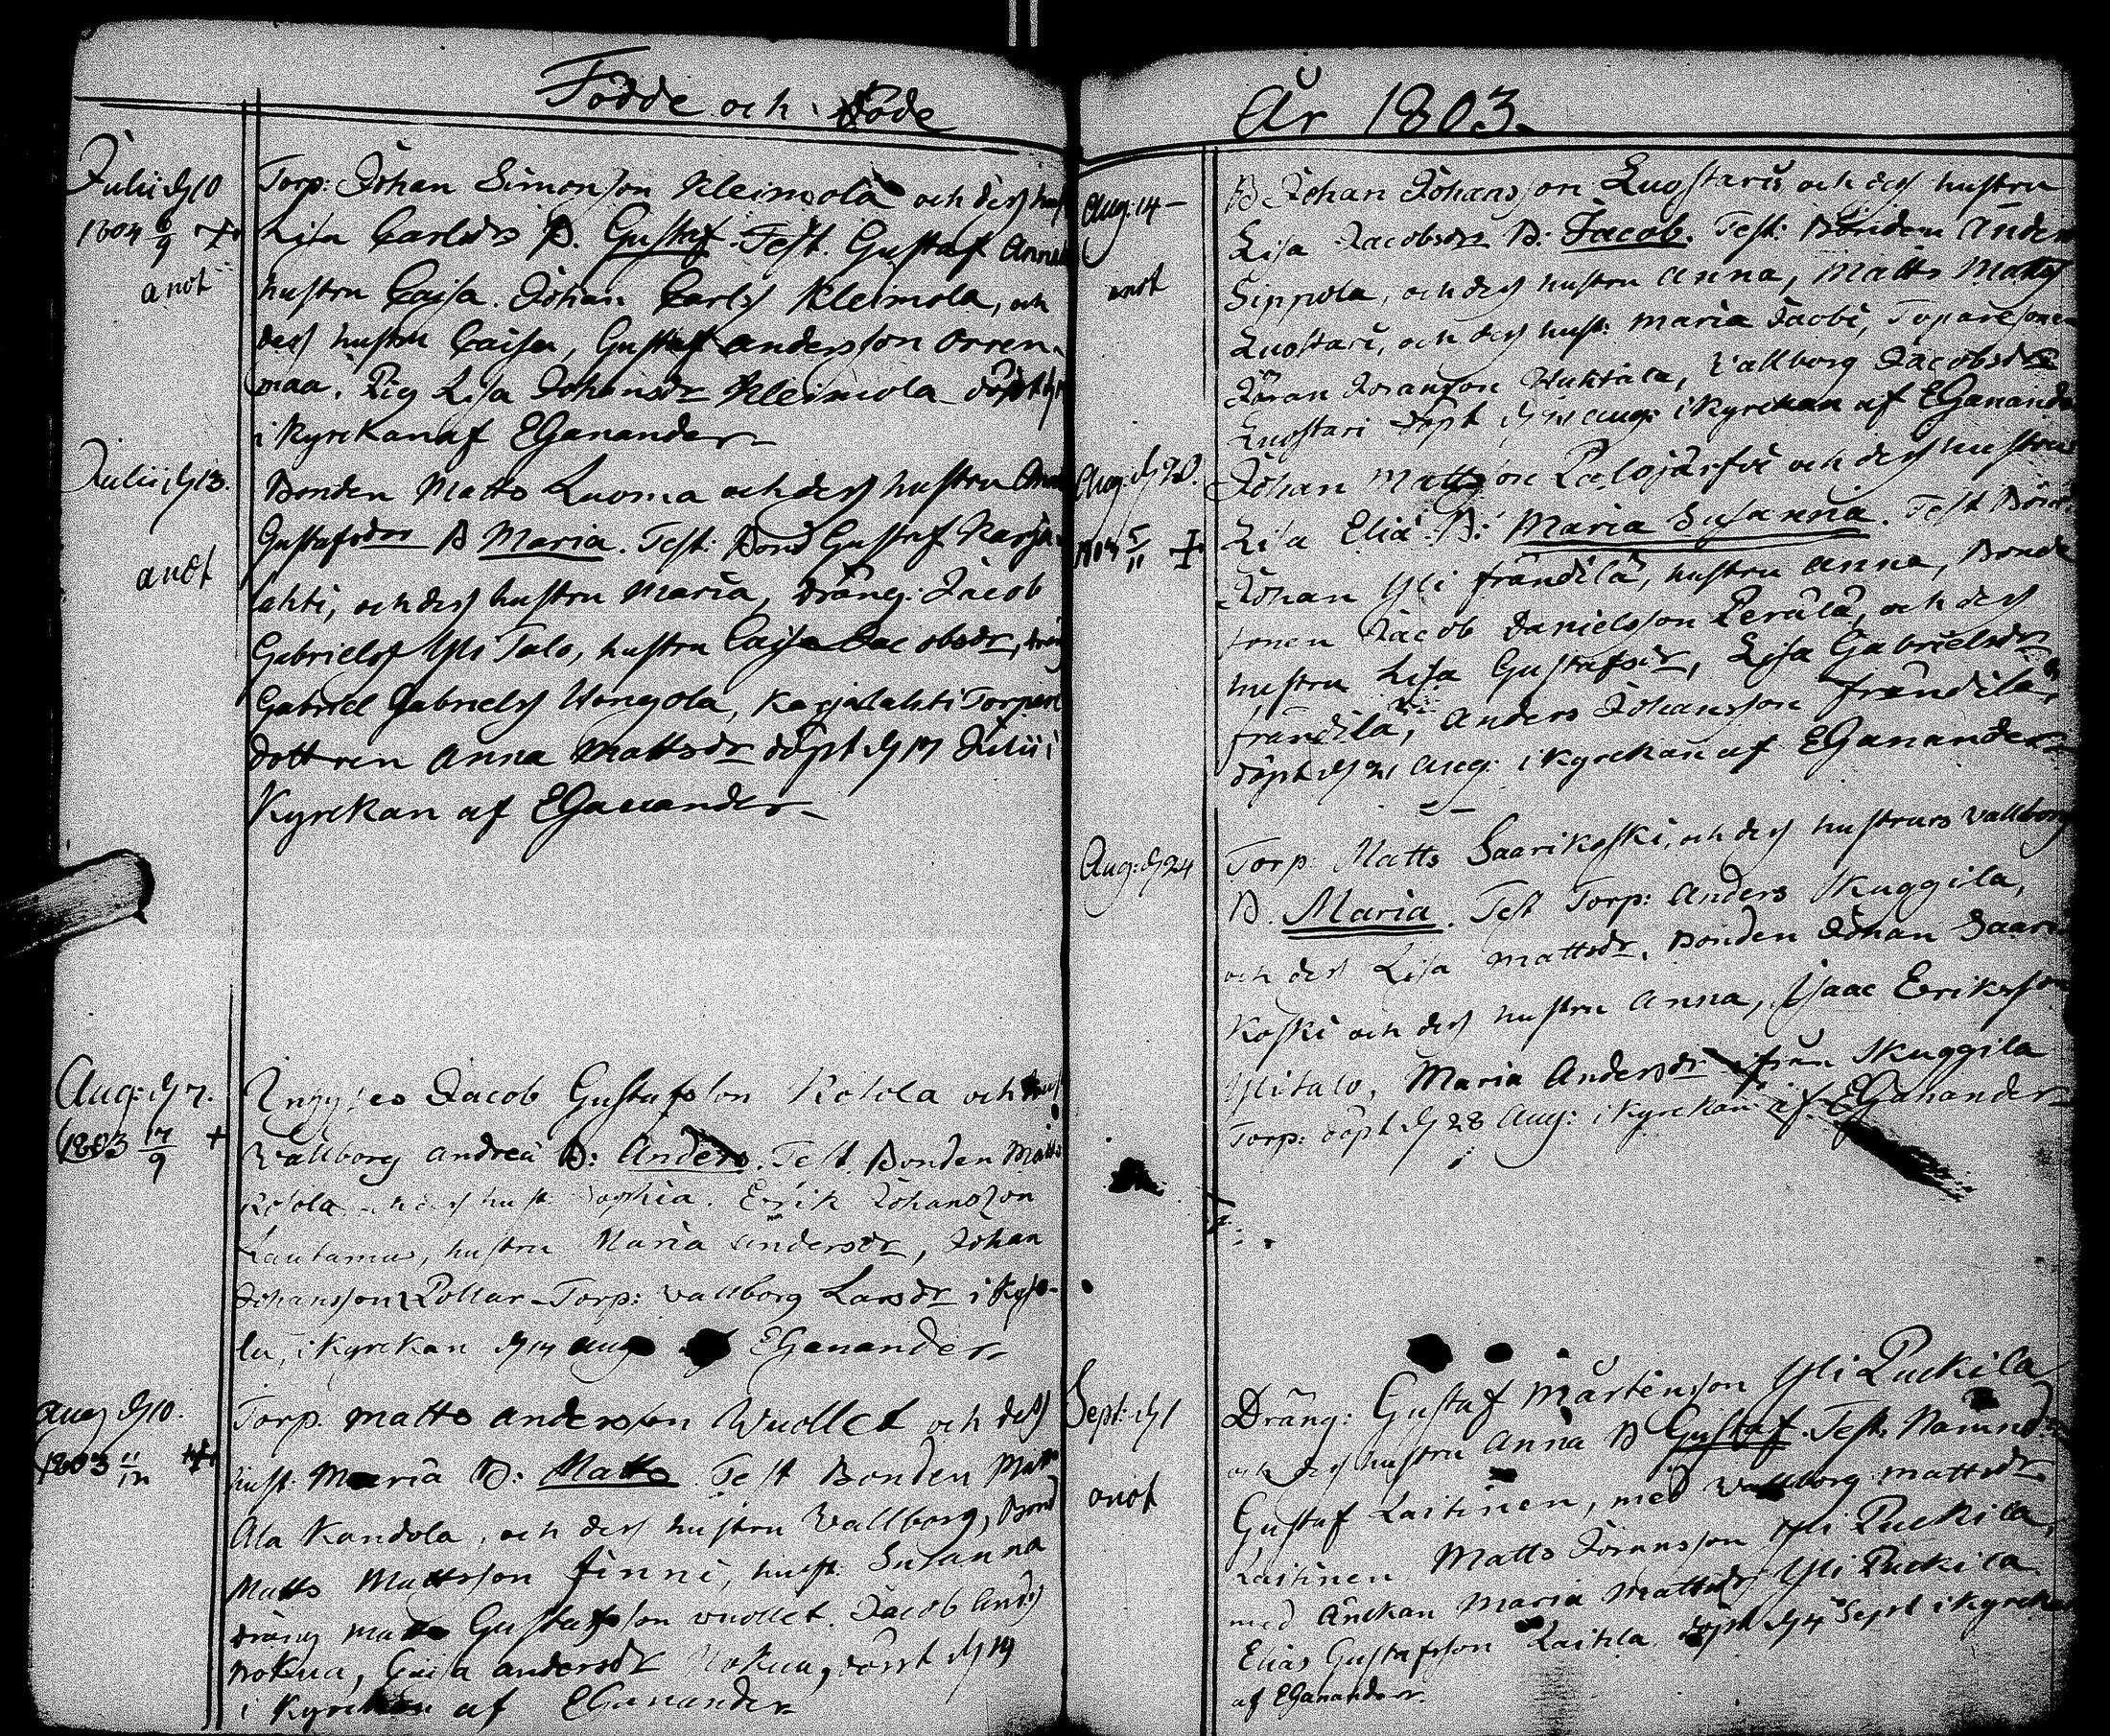 Födde och Döde
Julii d 10
1804 6/9 +
anot
Torp: Johan Simonsson Kleimola och dess hust
Lisa Carlsdr B. Gustaf. Test. Gustaf Anne
hustru Caisa. Johan Carls Kleimola, och
dess hustru Caisa, Gustaf andersson Orren-
maa. Pig Lisa Johansdr Kleimola döpt
i Kyrckan af EGanander
Julii d 13.
anot
Bonden Matts Luoma och dess hustru Anna
Gustafsdr B Maria. Test: Bond Gustaf Karja-
lahti, och dess hustru Maria, Dräng: Jacob
Gabriels Yli Talo, hustru Caisa Jacobsdr, dräng
Gabriel Gabriels Hongola, Karjalahti Torpare
dottren Anna Mattsdr döpt d 17 Julii i
Kyrckan af EGanander
Aug: d 7.
1803 17/9 +
Jacob Gustafsson Rotola och hust
Wallborg Andreä B: Anders. Test. Bonden Matts
Rotola och dess hust Sophia. Erik Johansson
Lautamus, hustru Maria Andersdr, Johan
Johansson Pollar-Torp: Wallborg Larsdr i
i Kyrckan d 14 Aug af EGanander
Aug d 10.
1803 11/12 +
Torp: Matts Andersson Wuollet och dess
hust: Maria B: Matts Test Bonden Matts
Ala Kandola, och dess hustru Wallborg, Bond
Matts Mattsson Finni, hust: Susanna
Dräng Matts Gustafsson Wuollet. Jacob Anders
Nokua, Caisa Andersdr Nokua, döpt d 14
i Kyrckan af EGanander
År 1803.
Aug: 14
anot
B Johan Johansson Luostari och dess hustru
Lisa Jacobsdr B: Jacob. Test: Bonden Anders
Sippola, och dess hustru Anna, Matts Matts
Luostari, och dess hust: Maria Jacobi, Torparesonen
Jöran Jöransson Huhtala, Wallborg Jacobsdr
Luostari döpt d 21 Aug: i Kyrckan af EGanander
Aug: d 20.
5/11 +
Johan Mattsson Palojärfvi och dess hustru
Lisa Eliä B: Maria Susanna. Test Bond
Johan Yli Frändilä, hustru Anna, Bonde
sonen Jacob Danielsson Perälä, och dess
hustru Lisa Gustafsdr, Lisa Gabrielsdr
Frändila, Anders Johansson Frändila,
döpt d 21 Aug: i Kyrckan af EGanander
Aug: d 24
Torp Matts Saarikoski, och dess hustrus Wallborg
B. Maria. Test Torp: Anders Skuggila,
och dess Lisa Mattsdr. Bonden Johan Saari
koski och dess hustru Anna, Isaac Eriksson
Ylitalo, Maria Andersdr ifrån Skuggila
Torp: döpt d 28 Aug: i Kyrckan af EGanander
Sept: d 1
anot
Dräng: Gustaf Mårtensson Yli Puckila
och dess hustru Anna B Gustaf. Test. Nämnd:
Gustaf Laitinen, med Wallborg Mattsdr
Laitinen Matts Jöransson Yli Puckila,
med Änckan Maria Mattsdr Yli Puckila.
Elias Gustafsson Laitila. döpt d 4 Sept i Kyrckan
af EGanander.